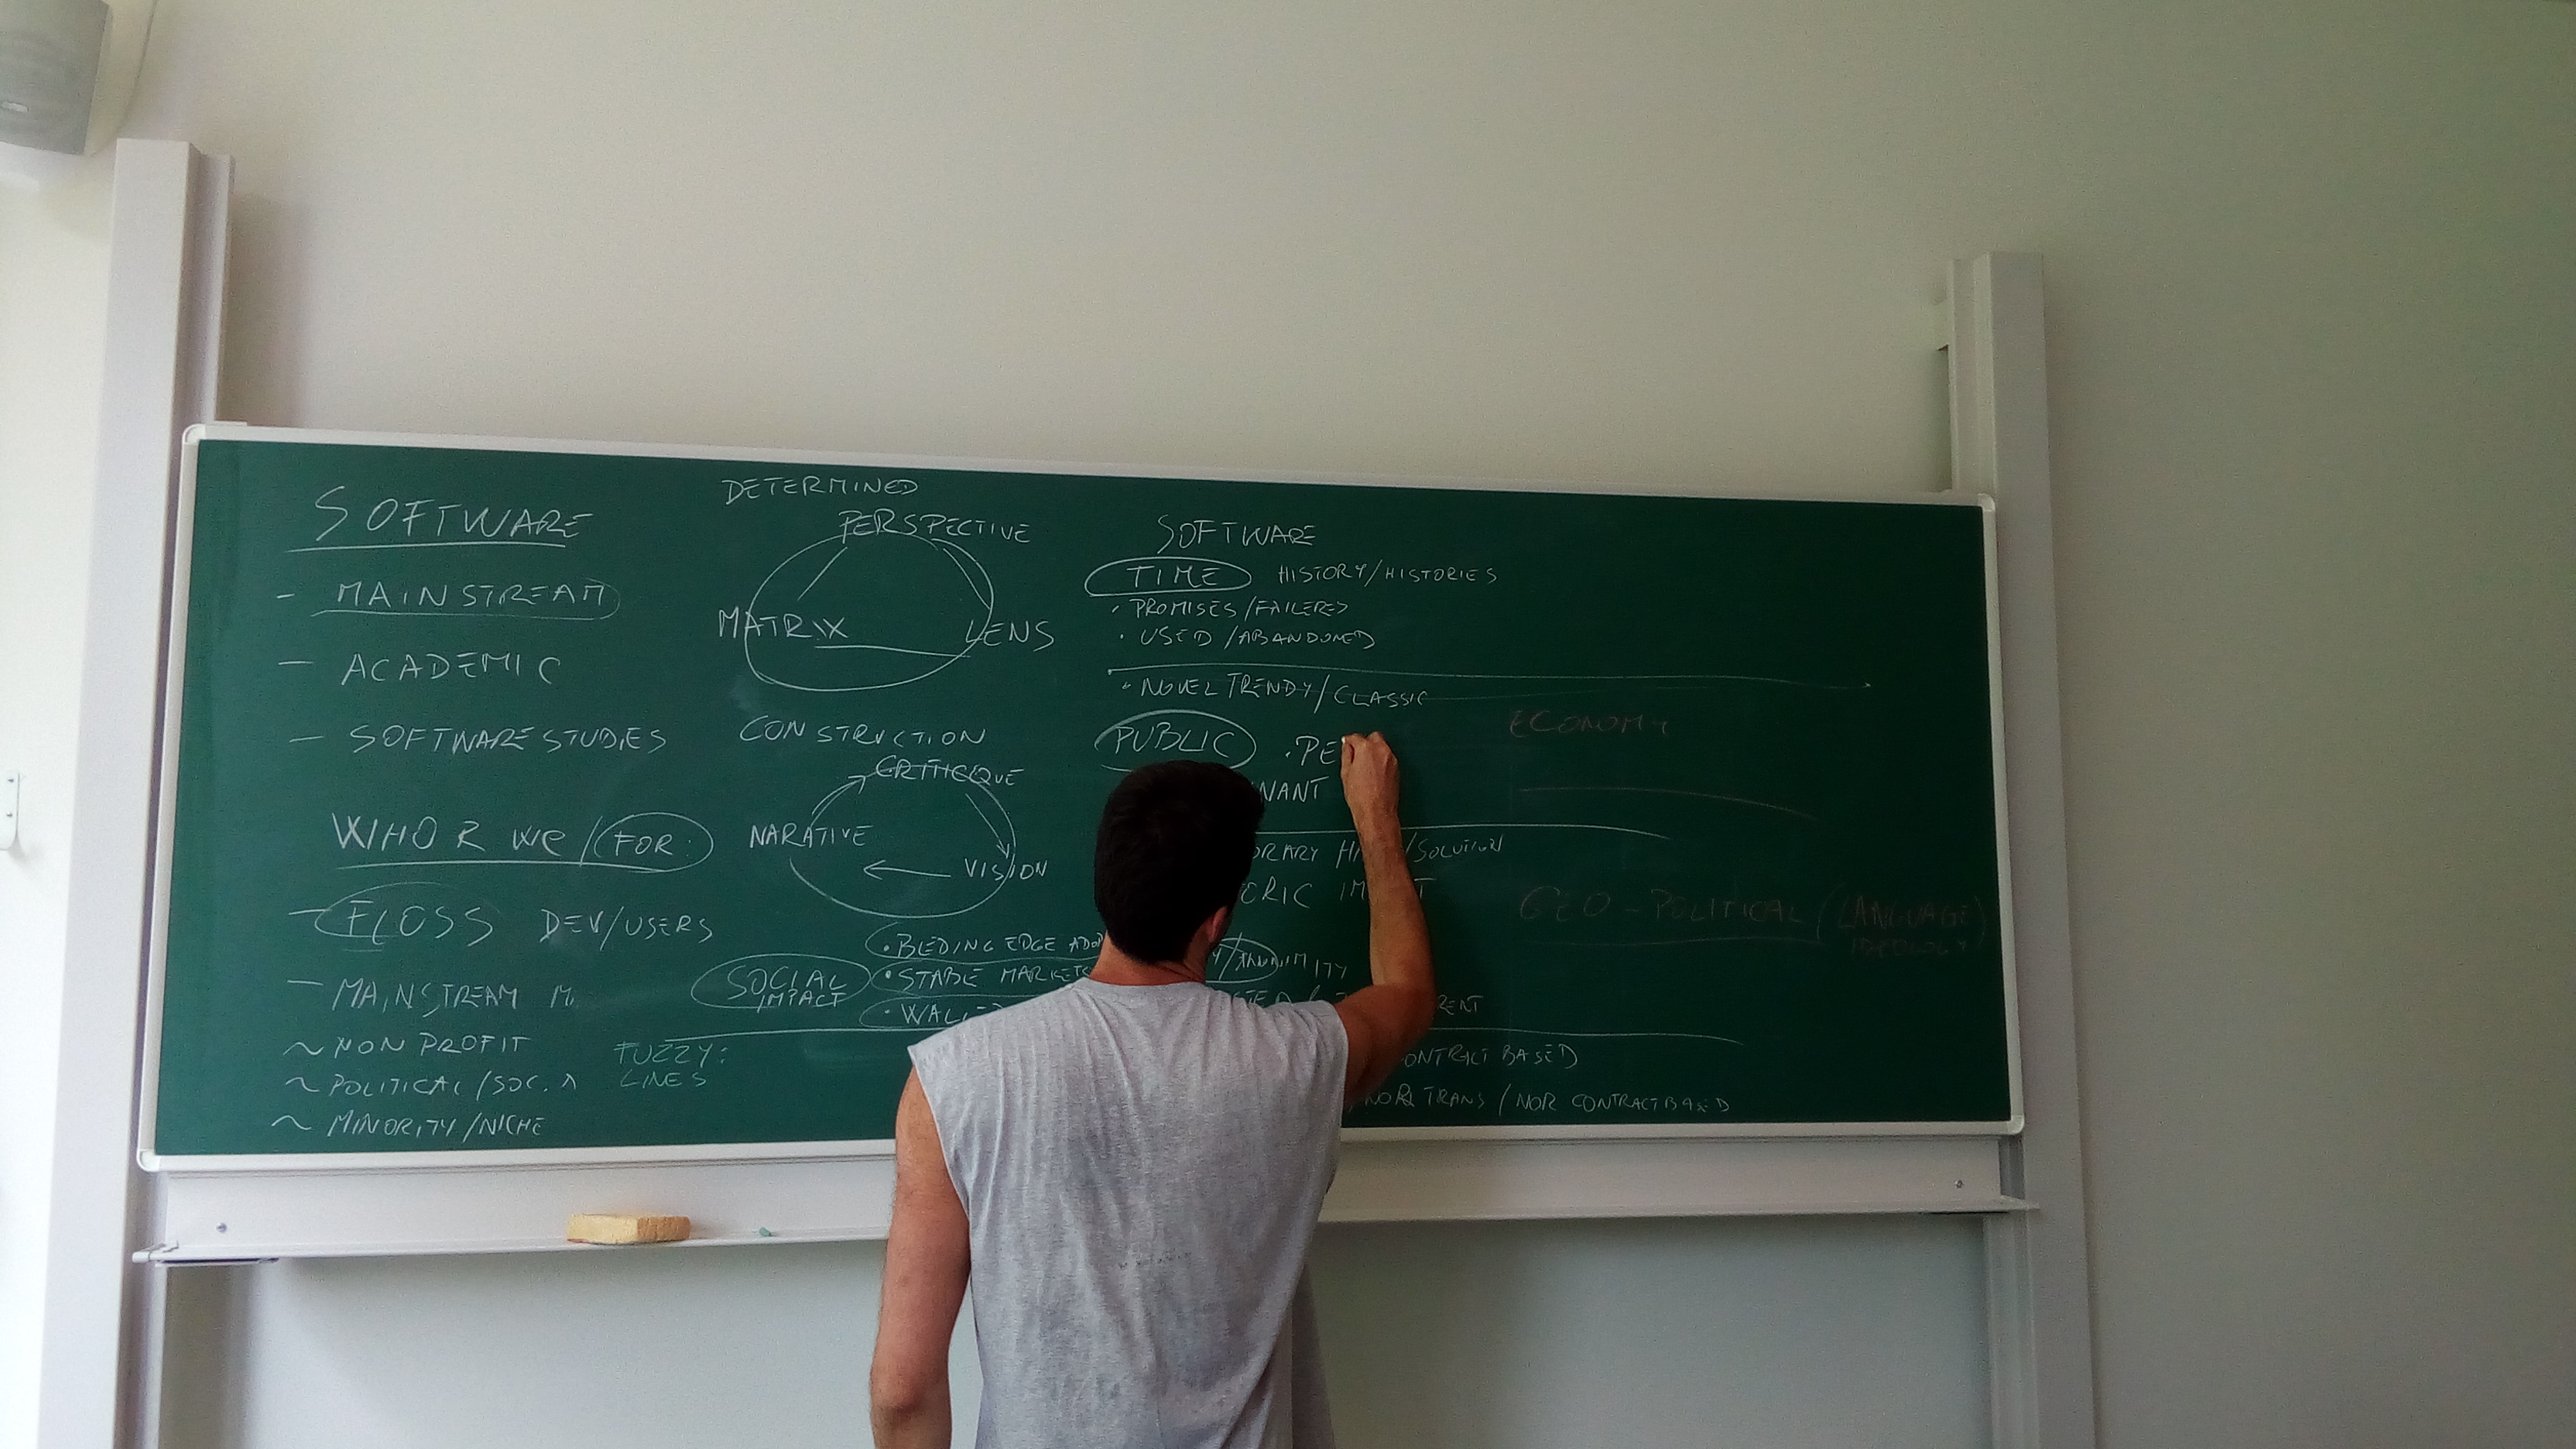 SOFTWARE
- MAINSTREAM
- ACADEMIC
- SOFTWARE STUDIES
WHO R WE / FOR:
- FLOSS DEV/USERS
- MAINSTREAM M.
~ NON PROFIT
~ POLITICAL/SOC.
~ MINORITY/NICHE
DETERMINED
PERSPECTIVE
MATRIX LENS
CONSTRUCTION
CRITICQUE
NARATIVE
VISION
SOCIAL
IMPACT
• BLEDING EDGE
• STABLE MARKETS
FUZZY:
LINES
SOFTWARE
TIME HISTORY/HISTORIES
• PROMISES/FAILERES
• USED/ABANDONED
• NOVEL TRENDY/CLASSIC
PUBLIC • PE
/SOLUTION
CONTRACT BASED
NOR TRANS / NOR CONTRACT BASED
ECONOMY
GEO-POLITICAL (LANGUAGE)
IDEOLOGY